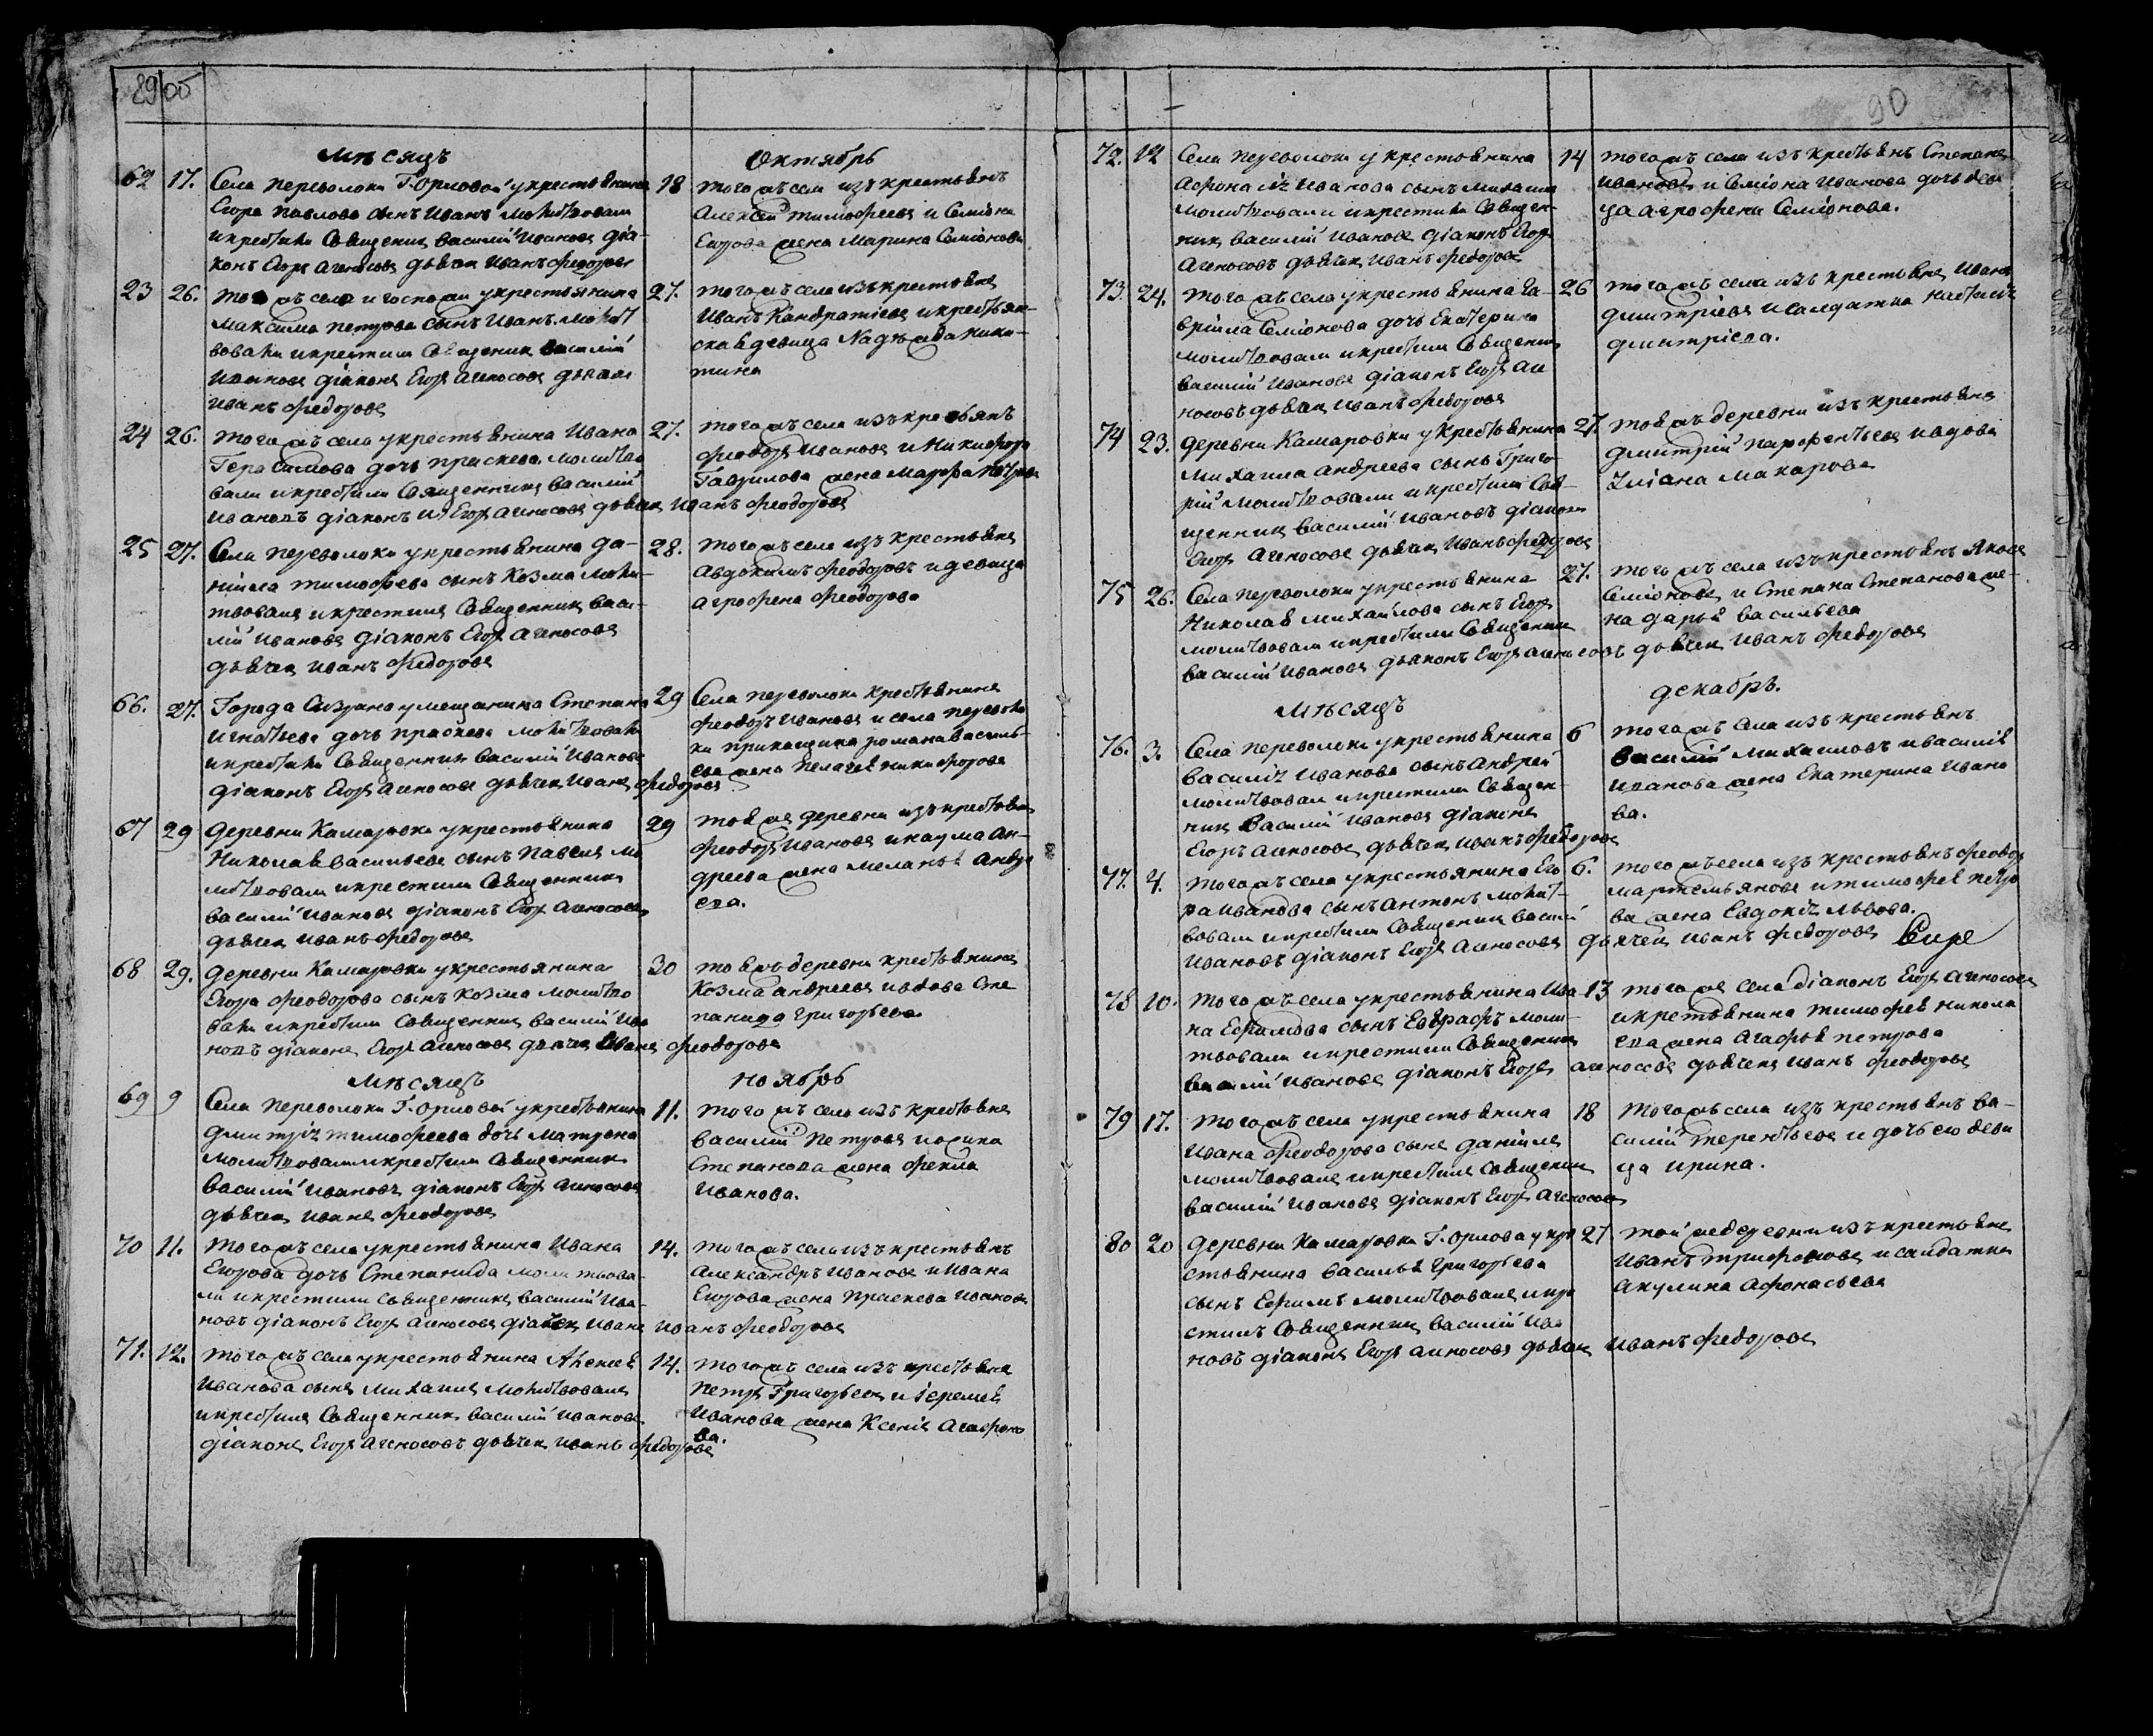 89 об
Мѣсяцъ Октябрь
62 17. Села Переволоки Г. Орловой у крестьянина
Егора Павлова сынъ Иванъ молитвовали
и крестили Священникъ Василій Ивановъ діа-
конъ Егоръ Агеносовъ дьячекъ Иванъ Федоровъ
18 того жъ села изъ крестьянъ
Алексѣй Тимофеевъ и Семіона
Егорова жена Марина Семіонова
23 26. того жъ села и госпожи у крестьянина
Максима Петрова сынъ Иванъ. Молит
вовали и крестили Священникъ Василій
Ивановъ діаконъ Егоръ Агеносовъ дьячекъ
Иванъ Федоровъ
27. того жъ села изъ крестьянъ
Иванъ Кандратіевъ и крестьян-
ская девица Надежда Ники-
тина
24 26. того жъ села у крестьянина Ивана
Герасимова дочь Праскева. молитво
вали и крестили Священникъ Василій
Ивановъ діаконъ Егоръ Агеносовъ дьячек Иванъ Феодоровъ
27. того жъ села изъ крестьянъ
Феодоръ Ивановъ и Никифора
Гаврилова жена Марфа Петрова
25 27. Села Переволоки у крестьянина Да-
ніила Тимофеева сынъ Козма моли-
твовали и крестили Священникъ Васи-
лій Ивановъ діаконъ Егоръ Агеносовъ
дьячекъ Иванъ Федоровъ
28. того жъ села изъ крестьянъ
Авдокимъ Феодоровъ и девица
Агрофена Феодорова
66. 27. Города Сызрана у мещанина Степана
Игнатьева дочь Праскева молитвовали
и крестили Священникъ Василій Ивановъ
діаконъ Егоръ Агеносовъ дьячекъ Иванъ Федоровъ
29 Села Переволоки крестьянинъ
Феодоръ Ивановъ и села Переволо
ки прикащика Романа Василь-
ева жена Пелагея Никифорова
67 29 деревни Камаровки у крестьянина
Николая Васильева сынъ Павелъ мо
литвовали и крестили Священникъ
Василій Ивановъ діаконъ Егоръ Агеносовъ
дьячекъ Иванъ Федоровъ
29 тоя же деревни изъ крестьянъ
Феодоръ Ивановъ и Наума Ан-
дреева жена Меланья Андре
ева.
68 29. деревни Камаровки у крестьянина
Егора Феодорова сынъ Козма молитво
вали и крестили Священникъ Василій Ива
новъ діаконъ Егоръ Агеносовъ дьячекъ Иванъ Феодоровъ
30 тоя жъ деревни крестьянинъ
Козма Андреевъ и вдова Сте
панида Григорьева
Мѣсяцъ Ноябрь
69 9 Села Переволоки Г. Орловой у крестьянина
Дмитрія Тимофеева дочь Матрена
молитвовали и крестили Священникъ
Василій Ивановъ діаконъ Егоръ Агеносовъ
дьячекъ Иванъ Феодоровъ
11. того жъ села изъ крестьянъ
Василій Петровъ и Осипа
Степанова жена Фекла
Иванова.
70 11. того жъ села у крестьянина Ивана
Егорова дочь Степанида молитвова-
ли и крестили Священникъ Василій Ива-
новъ діаконъ Егоръ Агеносовъ дьячекъ Иванъ Иванъ Феодоровъ
14. того жъ села изъ крестьянъ
Александръ Ивановъ и Ивана
Егорова жена Праскева Иванова
71. 12. того жъ села у крестьянина Алексея
Иванова сынъ Михаилъ молитвовали
и крестили Священникъ Василій Ивановъ
діаконъ Егоръ Агеносовъ дьячекъ Иванъ Федоровъ
14. того жъ села изъ крестьянъ
Петръ Григорьевъ и Іеремея
Иванова жена Ксенія Агафоно
ва.
90
72. 12 Села Переволоки у крестьянина
Афонасія Иванова сынъ Михаилъ
молитвовали и крестили Священ-
никъ Василій Ивановъ діаконъ Егоръ
Агеносовъ дьячекъ Иванъ Федоровъ
14 того жъ села изъ крестьянъ Степанъ
Ивановъ и Семіона Иванова дочь деви
ца Агрофена Семіонова.
73. 24. того жъ села у крестьянина Га-
вріила Семіонова дочь Екатерина
молитвовали и крестили Священникъ
Василій Ивановъ діаконъ Егоръ Аге
носовъ дьячекъ Иванъ Федоровъ
26 того жъ села изъ крестьянъ Иванъ
Дмитріевъ и салдатка Настасія
Дмитріева.
74 23. деревни Камаровки у крестьянина
Михаила Андреева сынъ Григо-
рій молитвовали и крестили Свя-
щенникъ Василій Ивановъ діаконъ
Егоръ Агеносовъ дьячекъ Иванъ Федоровъ
27 тоя жъ деревни изъ крестьянъ
Дмитрій Парфентьевъ и вдова
Уліана Макарова
75 26. Села Переволоки у крестьянина
Николая Михайлова сынъ Егоръ
молитвовали и крестили Священникъ
Василій Ивановъ дьяконъ Егоръ Агеносовъ дьячекъ Иванъ Федоровъ
27. того жъ села изъ крестьянъ Яковъ
Семіоновъ и Степана Степанова же-
на Дарья Васильева
Мѣсяцъ Декабрь.
76. 3. Села Переволоки у крестьянина
Василія Иванова сынъ Андрей
молитвовали и крестили Священ-
никъ Василій Ивановъ діаконъ
Егоръ Агеносовъ дьячекъ Иванъ Федоровъ
6 того жъ села изъ крестьянъ
Василій Михаиловъ и Василія
Иванова жена Екатерина Ивано
ва.
77. 4. того жъ села у крестьянина Его
ра Иванова сынъ Антонъ молит-
вовали и крестили Священникъ Василій
Ивановъ діаконъ Егоръ Агеносовъ дьячекъ Иванъ Федоровъ
6. того жъ села изъ крестьянъ Феодоръ
Мартемьяновъ и Тимофея Петро
ва жена Евдокія Львова.
78 10. того жъ села у крестьянина Ива
на Ефимова сынъ Евграфъ моли-
твовали и крестили Священникъ
Василій Ивановъ діаконъ Егоръ Агеносовъ дьячекъ Иванъ Феодоровъ
13 того же села діаконъ Егоръ Агеносовъ
и крестьянина Тимофея Никола
ева жена Агафья Петрова
79 17. того жъ села у крестьянина
Ивана Феодорова сынъ Даніилъ
молитвовали и крестили Священникъ
Василій Ивановъ діаконъ Егоръ Агеносовъ
18 того жъ села изъ крестьянъ Ва-
силій Терентьевъ и дочь его деви
ца Ирина.
80 20 деревни Камаровки Г. Орлова у кре
стьянина Василья Григорьева
сынъ Ефимъ молитвовали и кре
стилъ Священникъ Василій Ива
новъ діаконъ Егоръ Агеносовъ дьячекъ Иванъ Федоровъ
27 той же деревни изъ крестьянъ
Иванъ Трифоновъ и салдатка
Акулина Афонасьева